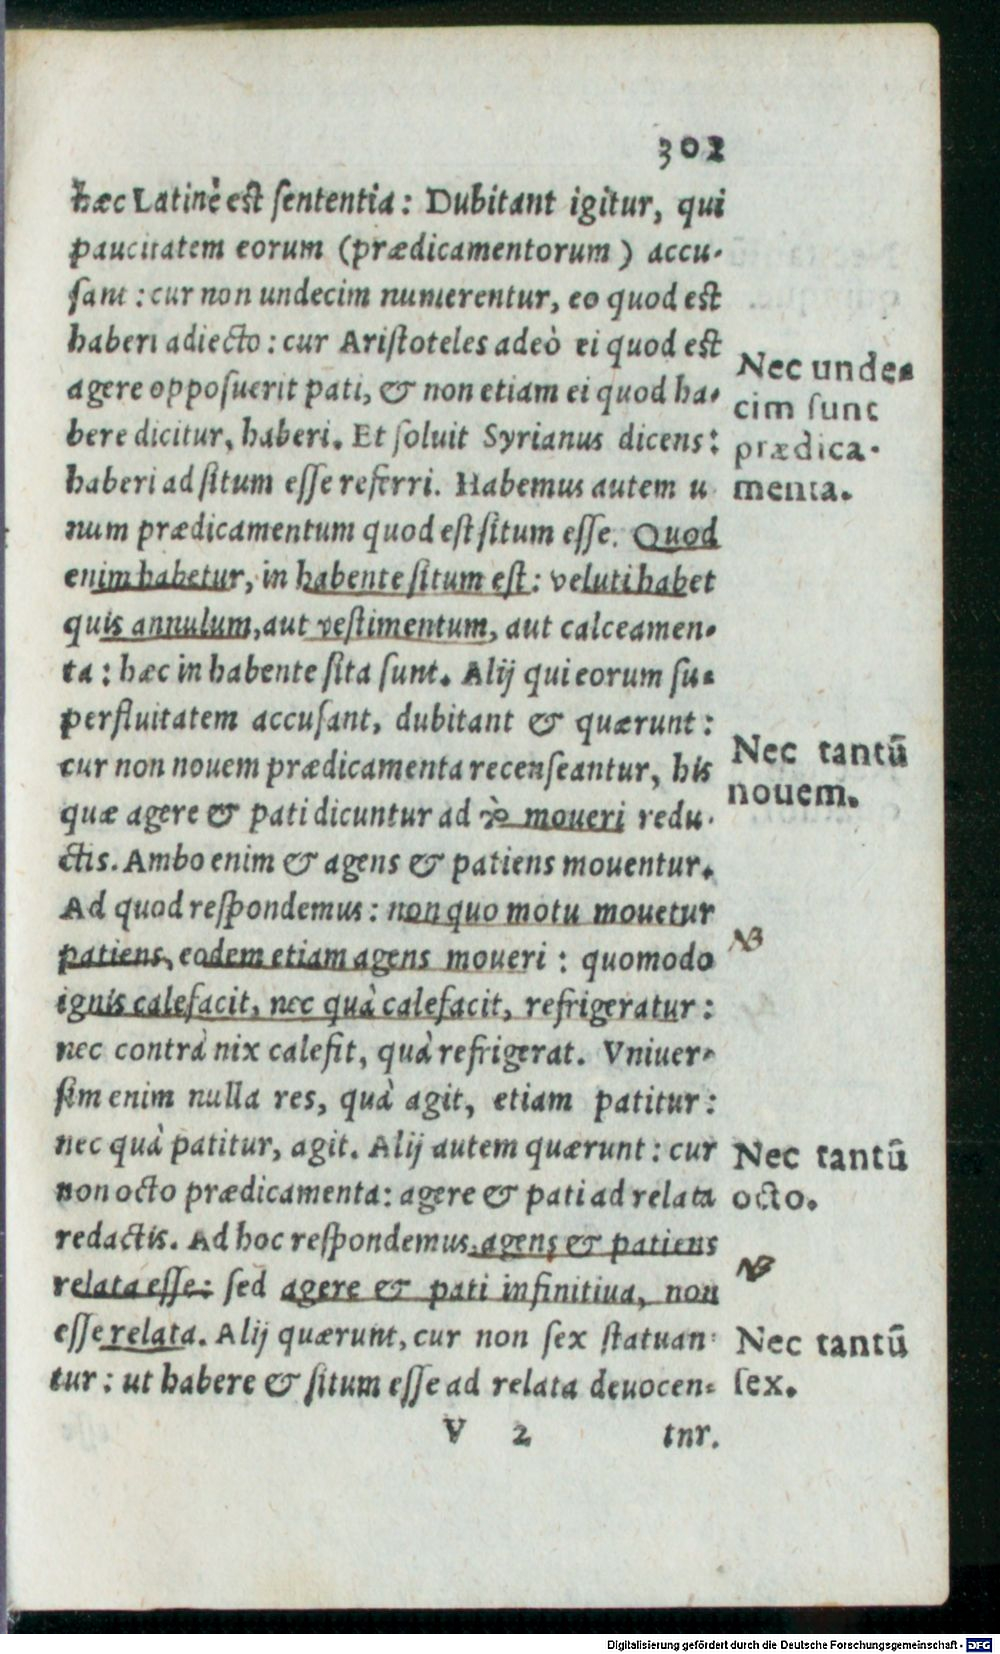 302
hæc Latinè est sententia: Dubitant igitur, qui
paucitatem eorum (prædicamentorum) accu-
sant: cur non undecim numerentur, eo quod est
haberi adiecto: cur Aristoteles adeò ei quod est
agere opposuerit pati, & non etiam ei quod ha-
bere dicitur, haberi. Et soluit Syrianus dicens:
haberi ad situm esse referri. Habemus autem u
num prædicamentum quod est situm esse. Quod
enim habetur, in habente situm est: veluti habet
quis annulum, aut vestimentum, aut calceamen-
ta: hæc in habente sita sunt. Alij qui eorum su-
perfluitatem accusant, dubitant & quærunt:
cur non nouem prædicamenta recenseantur, his
quæ agere & pati dicuntur ad τὸ moueri redu-
ctis. Ambo enim & agens & patiens mouentur.
Ad quod respondemus: non quo motu mouetur
patiens, eodem etiam agens moueri: quomodo
ignis calefacit, nec quà calefacit, refrigeratur:
nec contrà nix calefit, quà refrigerat. Vniuer-
sim enim nulla res, quà agit, etiam patitur:
nec quà patitur, agit. Alij autem quærunt: cur
non octo prædicamenta: agere & pati ad relata
redactis. Ad hoc respondemus, agens & patiens
relata esse: sed agere & pati infinitiua, non
esse relata. Alij quærunt, cur non sex statuan-
tur: ut habere & situm esse ad relata deuocen-
V 2 tnr.
Nec unde-
cim sunt
prædica-
menta.
Nec tantū
nouem.
NB
Nec tantū
octo.
NB
Nec tantū
sex.
Digitalisierung gefördert durch die Deutsche Forschungsgemeinschaft - DFG